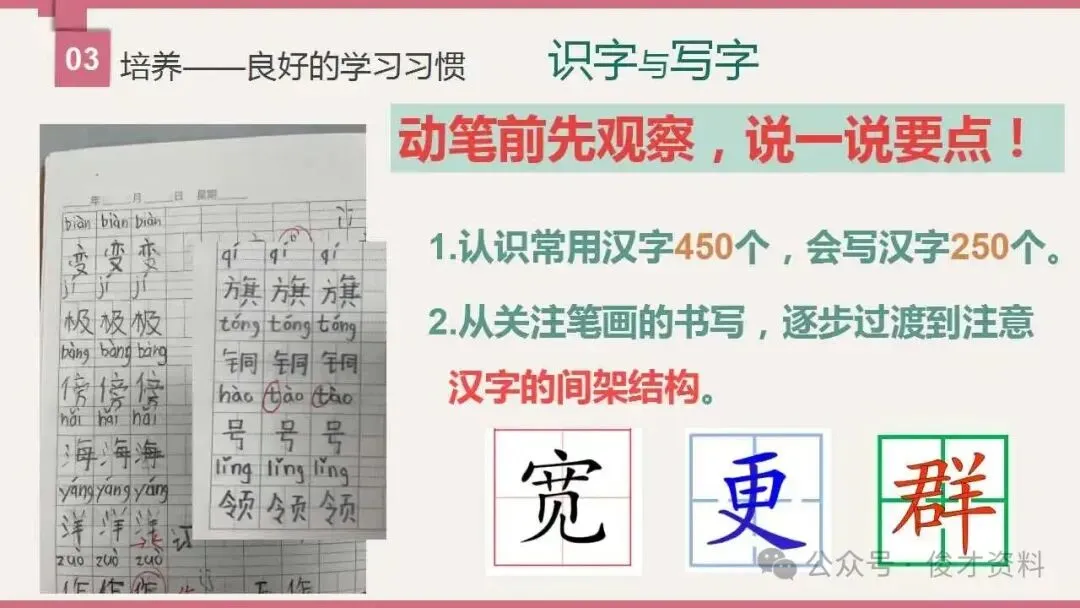 03
培养——良好的学习习惯
识字与写字
动笔前先观察，说一说要点！
年 月 日 星期
biàn biàn biàn
变 变 变
jí jí jí
极 极 极
bàng bàng bàng
傍 傍 傍
hǎi hǎi hǎi
海 海 海
yáng yáng yáng
洋 洋 洋
zuò zuò zuò
作 作 作
qí qí qí
旗 旗 旗
tóng tóng tóng
铜 铜 铜
hào tào tào
号 号 号
lǐng lǐng lǐng
领 领 领
1.认识常用汉字450个，会写汉字250个。
2.从关注笔画的书写，逐步过渡到注意
汉字的间架结构。
宽 更 群
公众号 · 俊才资料